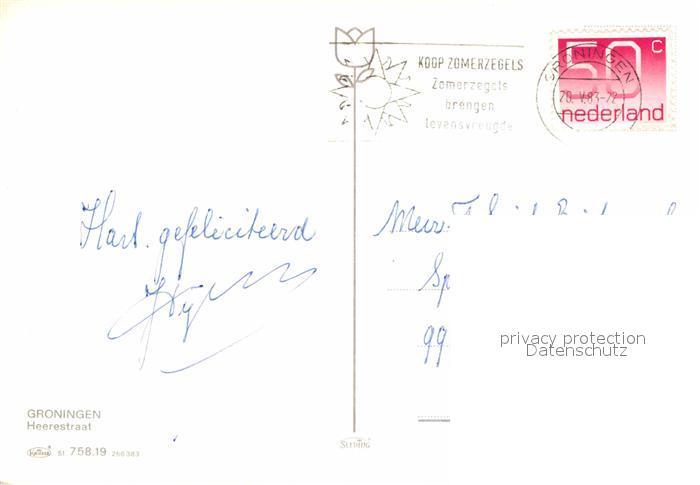 KOOP ZOMERZEGELS
Zomerzegels
brengen
levensvreugde
GRONINGEN
20. V.83-22
50 c
nederland
Hart. gefeliciteerd
Sp
99
privacy protection
Datenschutz
GRONINGEN
Heerestraat
St 758.19 266383